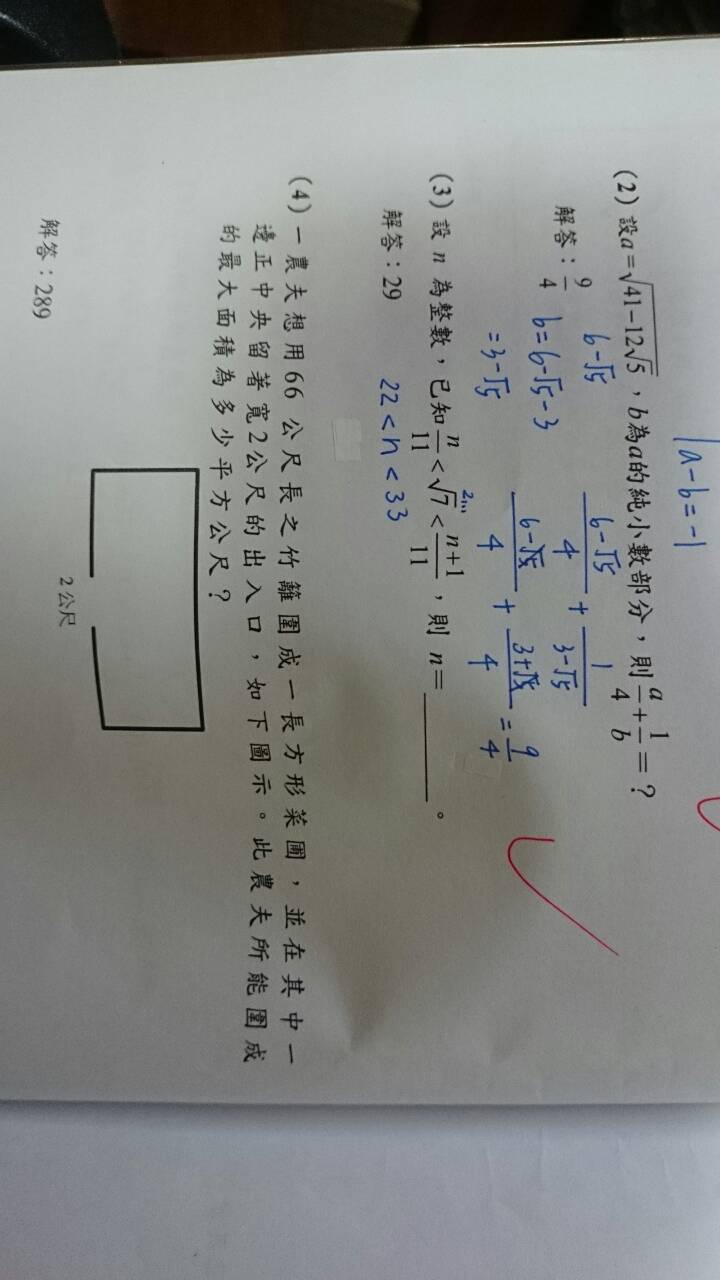 |a-b=-1
(2) 設a=√(41-12√5)，b為a的純小數部分，則a/4+1/b=？
6-√5
解答：9/4
b=6-√5-3
=3-√5
(6-√5)/4 + 1/(3-√5)
(6-√5)/4 + (3+√5)/4 = 9/4
(3) 設 n 為整數，已知n/11<√7<(n+1)/11，則 n=______。
2...
解答：29
22<n<33
(4) 一農夫想用66公尺長之竹籬圍成一長方形菜圃，並在其中一
邊正中央留著寬2公尺的出入口，如下圖示。此農夫所能圍成
的最大面積為多少平方公尺？
2公尺
解答：289